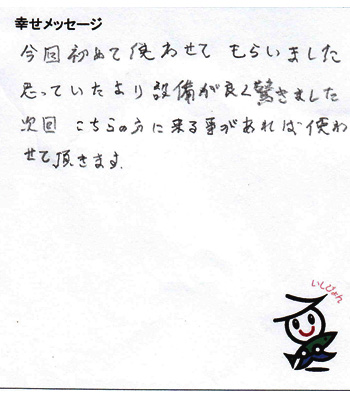 幸せメッセージ
今回初めて使わせてもらいました
思っていたより設備が良く驚きました
次回こちらの方に来る事があれば使わ
せて頂きます.
いしじょん